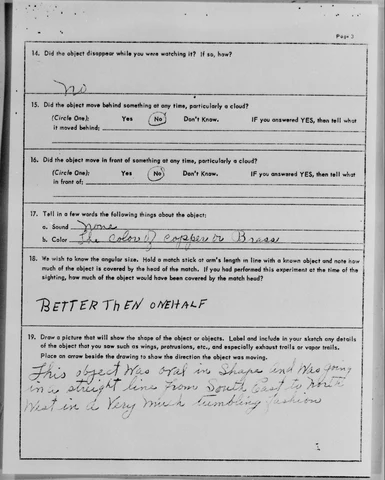 Page 3
14. Did the object disappear while you were watching it? If so, how?
No
15. Did the object move behind something at any time, particularly a cloud?
(Circle One): Yes No Don't Know. IF you answered YES, then tell what
it moved behind:
16. Did the object move in front of something at any time, particularly a cloud?
(Circle One): Yes No Don't Know. IF you answered YES, then tell what
in front of:
17. Tell in a few words the following things about the object:
a. Sound None
b. Color The Color of copper or Brass
18. We wish to know the angular size. Hold a match stick at arm's length in line with a known object and note how
much of the object is covered by the head of the match. If you had performed this experiment at the time of the
sighting, how much of the object would have been covered by the match head?
BETTER THEN ONE HALF
19. Draw a picture that will show the shape of the object or objects. Label and include in your sketch any details
of the object that you saw such as wings, protrusions, etc., and especially exhaust trails or vapor trails.
Place an arrow beside the drawing to show the direction the object was moving.
This object Was oval in Shape and Was going
in a streight line From South East to North
West in a Very Much tumbling fashion